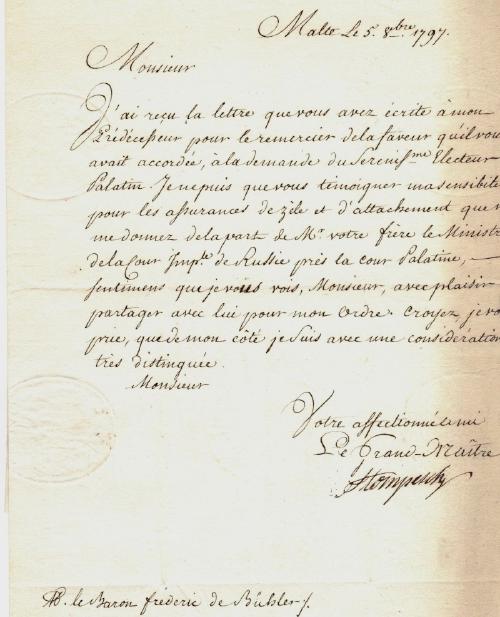 Malte Le 5. 8bre. 1797.
Monsieur
J'ai reçu la lettre que vous avez écrite à mon
Prédécesseur pour le remercier de la faveur qu'il vou
avait accordée, à la demande du Sérénisme Electeur
Palatin. Je ne puis que vous témoigner ma sensibilité
pour les assurances de zèle et d'attachement que
me donnez de la part de Mr. votre frère le Ministr
de la Cour Imple. de Russie près la cour Palatine, —
sentimens que je vous vois, Monsieur, avec plaisir
partager avec lui pour mon Ordre. Croyez, je vo
prie, que de mon côté je suis avec une considération
très distinguée.
Monsieur
Votre affectionné ami
Le Grand-Maître
Hompesch
le Baron fréderic de Bühler